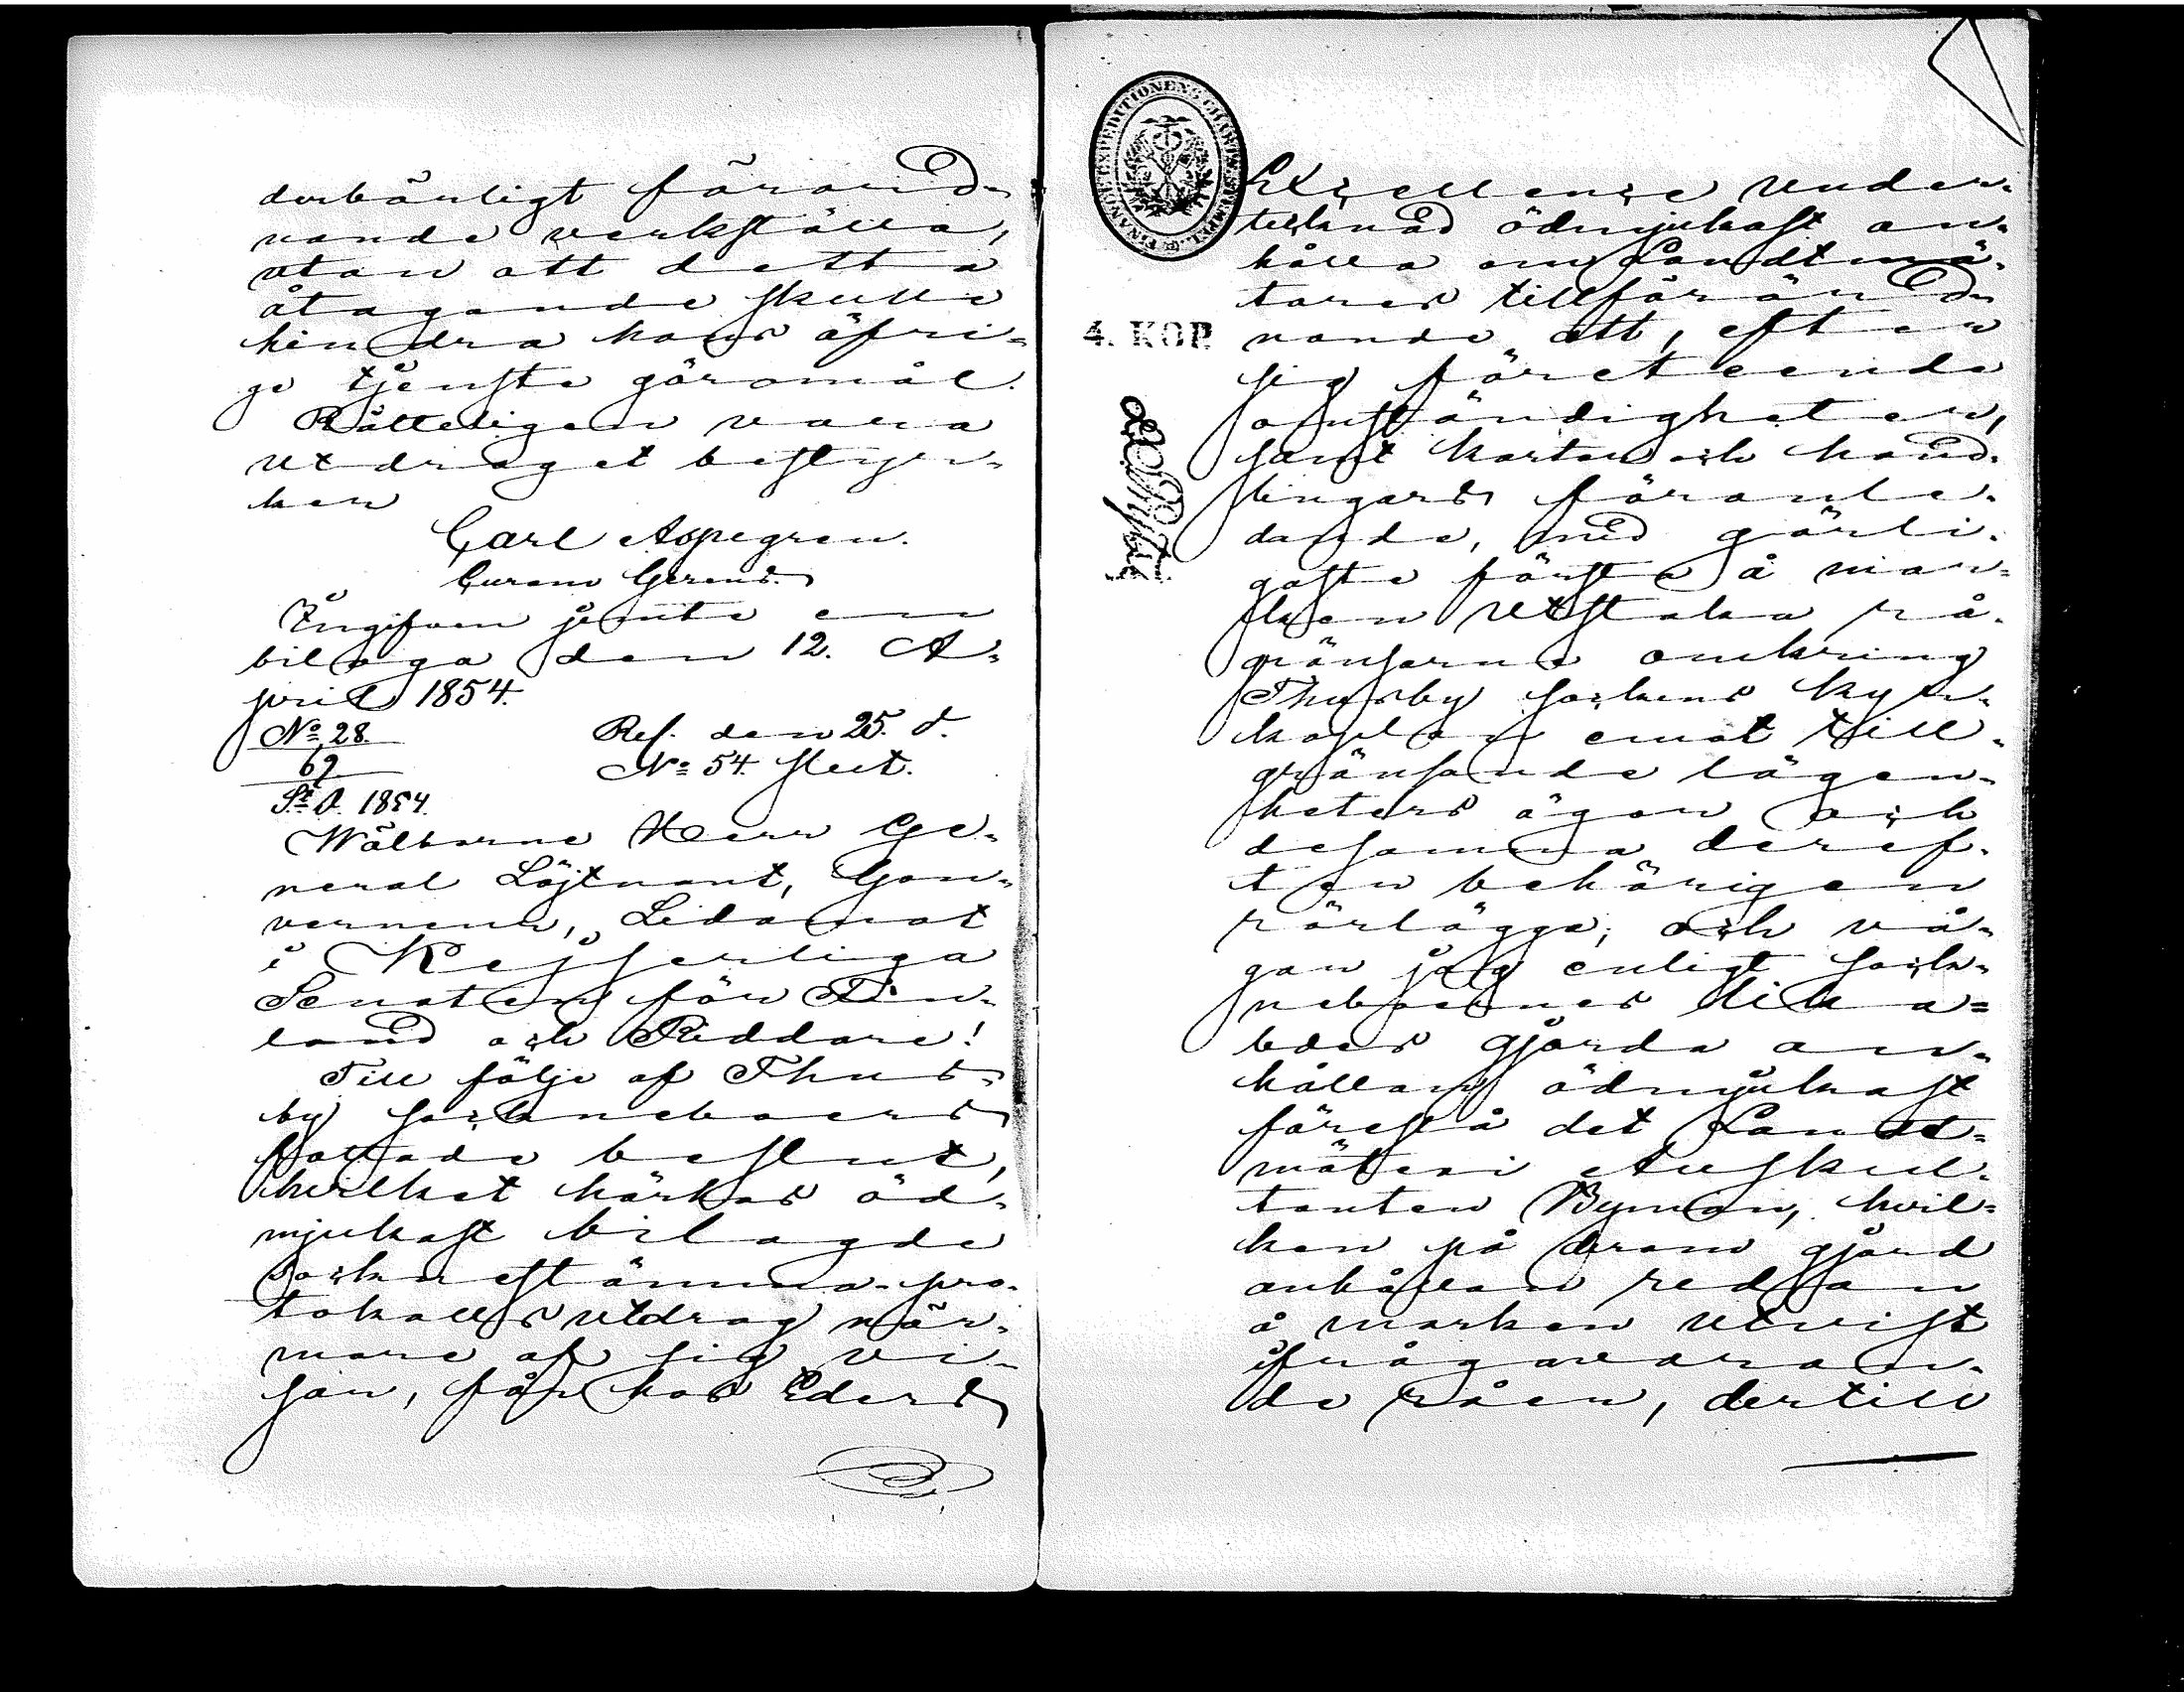 derbörligt förord-
nande verkställa,
utan att detta
åtagande skulle
hindra hans öfri-
ge tjenste göromål.
Rätteligen vara
utdraget bestyr-
ker
Carl Aspegren.
Curam Gerens.
Ingifven jemte en
bilaga den 12. A-
pril 1854.
No 28. Ref. den 25. d.
69 No 54. slut.
St. D. 1854.
Wälborne Herr Ge-
neral Löjtnant, Gou-
verneur, Ledamot
i Kejserliga
Senaten för Fin-
land och Riddare!
Till följe af Thus-
by sockneboers
fattade beslut,
hvilket härhos öd-
mjukast bilagde
sockenstämma-pro-
tokolls utdrag när-
mare af sig vi-
sar, får hos Eders
FINANCE EXPEDITIONENS CHARTÆ STEMPEL
4. KOP.
Excellence under-
tecknad ödmjukast an-
hålla om Landtmä-
tares tillförord-
nande att, efter
sig företeende
omständigheter,
samt kartor och hand-
lingars föranle-
dande, med görli-
gaste första å mar-
ken utstaka rå-
gränsorne omkring
Thusby sockens kyr-
koplan emot till-
gränsande lägen-
heters ägor och
desamma deref-
ter behörigen
rörlägga; och vå-
gar jag enligt sock-
neboernes lika-
ledes gjorda an-
hållan ödmjukast
föreslå det Landt-
mäteri Auskul-
tanten Byman, hvil-
ken på derom gjord
anhållan redan
å marken utvist
ifrågavaran-
de råen, dertill